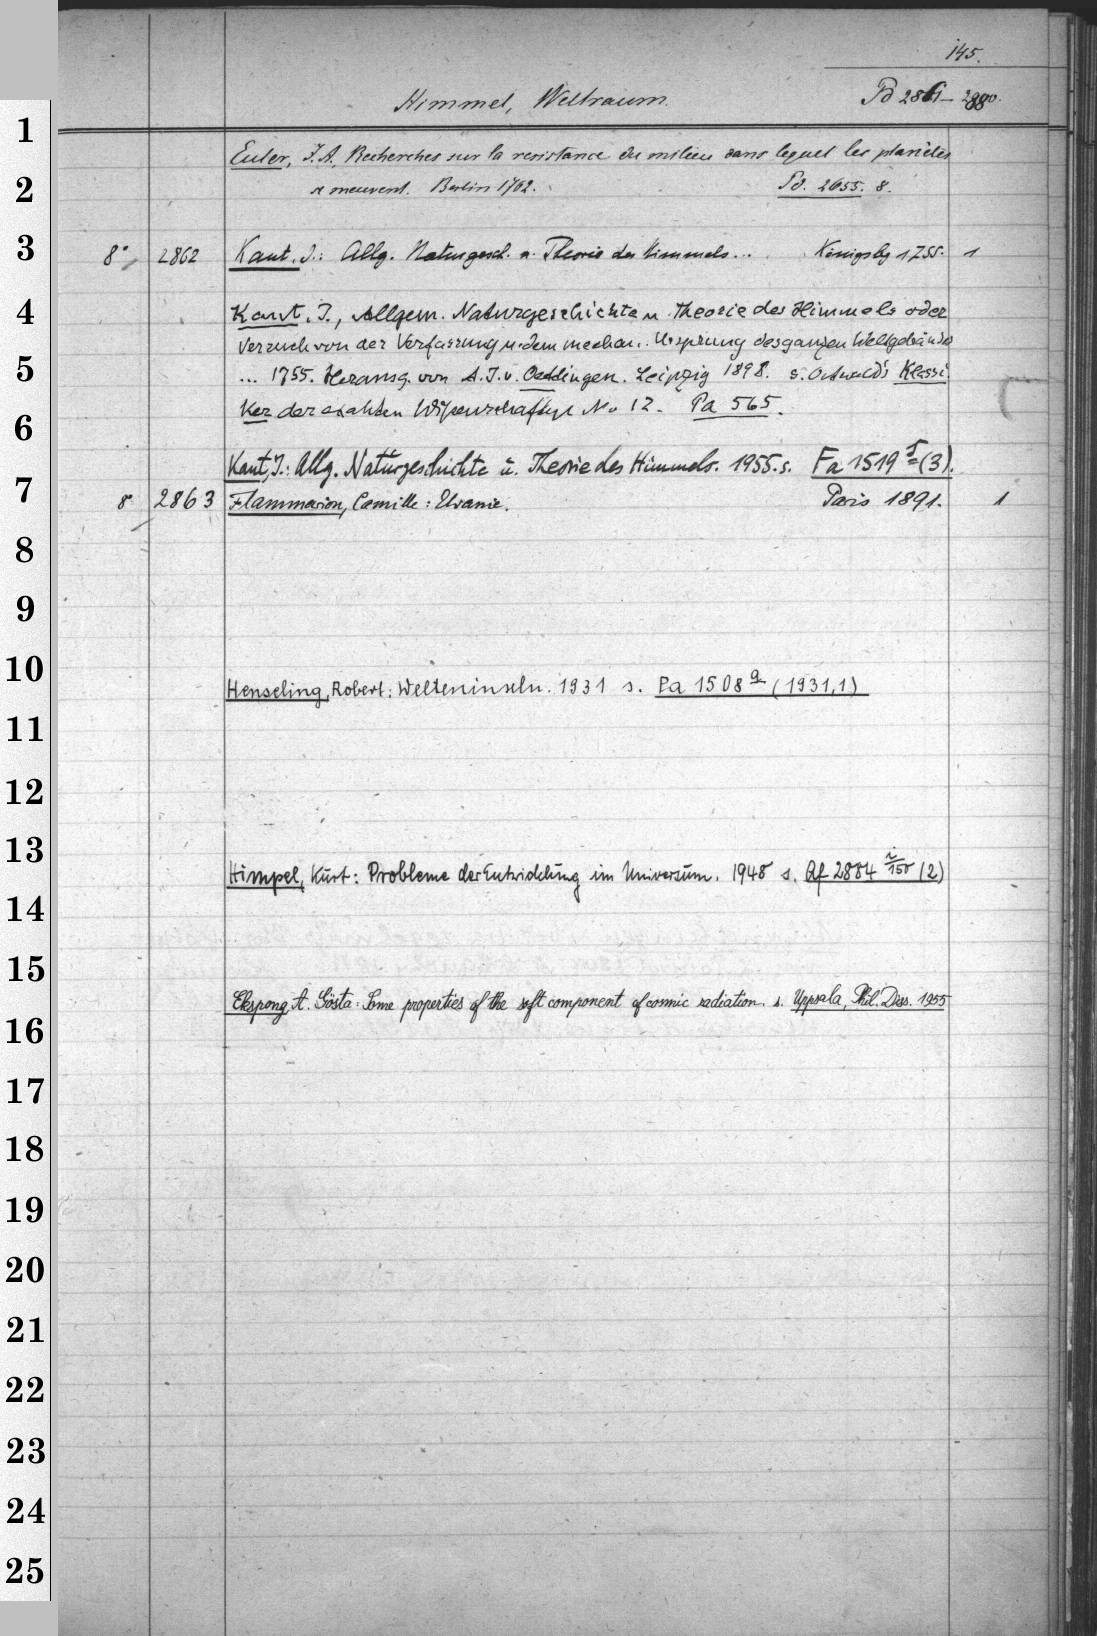 145.
Himmel, Weltraum. Pd 2861 - 2880.
1
Euler, J. A. Recherches sur la resistance du milieu dans lequel les planètes
2
se meuvent. Berlin 1762. Pd. 2655. 8.
3
8° 2862 Kant. J.: Allg. Naturgesch. u. Theorie des Himmels... Königsbg 1755. 1
4
Kant. J., Allgem. Naturgeschichte u. Theorie des Himmels oder
Versuch von der Verfassung u. dem mechan.. Ursprung des ganzen Weltgebäudes
5
... 1755. Herausg. von A. J. v. Oettingen. Leipzig 1898. s. Ostwald's Klassi
6
ker der exakten Wissenschaften No 12. Pa 565.
Kant, J.: Allg. Naturgeschichte u. Theorie des Himmels. 1955. s. Fa 1519 (3).
7
8 2863 Flammarion, Camille: Uranie. Paris 1891. 1
8
9
10
Henseling, Robert: Welteninseln. 1931 s. Pa 1508 a (1931,1)
11
12
13
Himpel, Kurt: Probleme der Entwicklung im Universum. 1948 s. Af 2884 i/150 (2)
14
15
Ekspong, A. Gösta: Some properties of the soft component of cosmic radiation. s. Uppsala, Phil. Diss. 1955
16
17
18
19
20
21
22
23
24
25